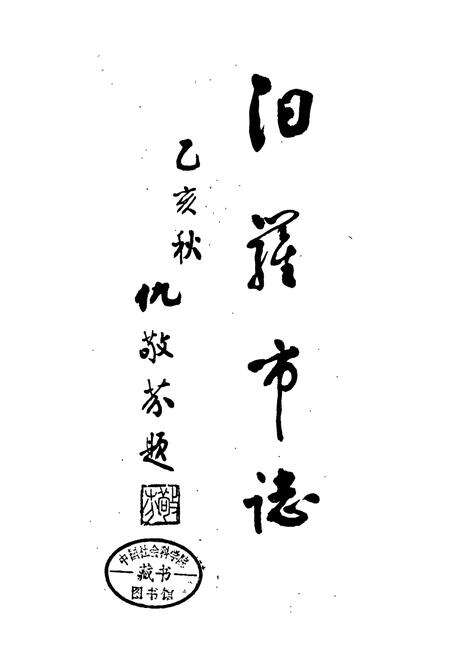 汨羅市誌
乙亥秋
仇敬芬題
中国社会科学院
藏书
图书馆